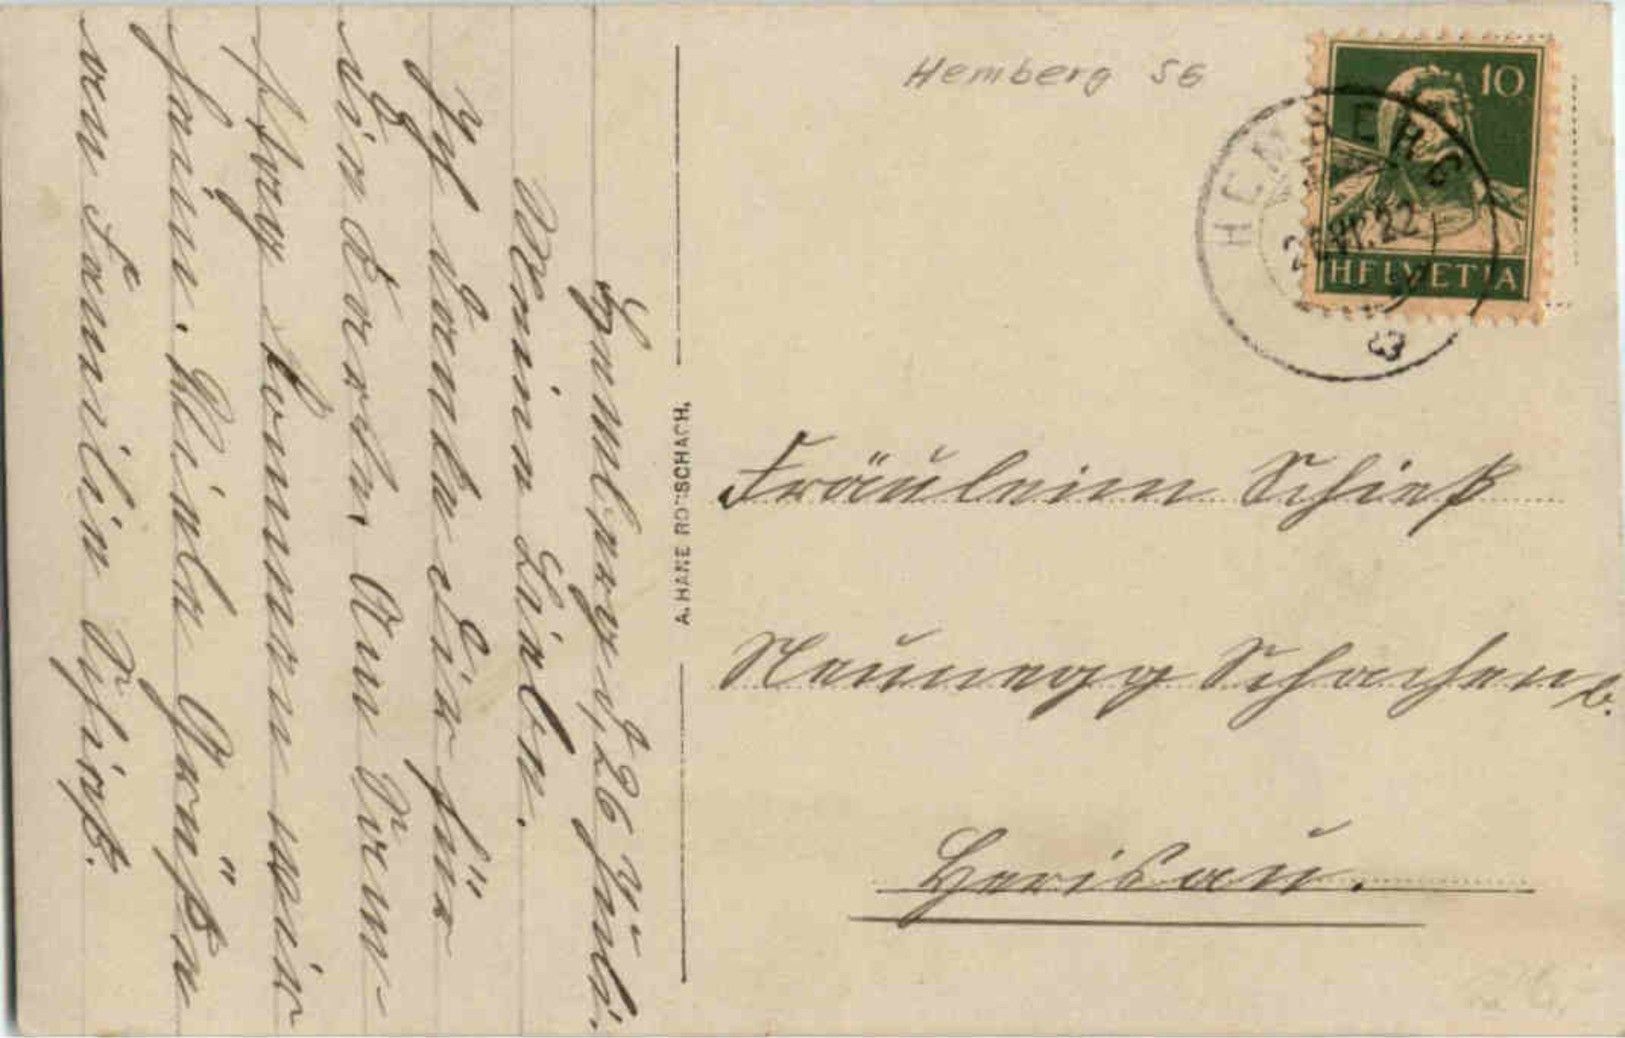 Hemberg SG
10
HELVETIA
HEMBERG
A. HANE RORSCHACH.
Fräulein Schieß
Neunegg Schachen b.
Herisau.
Hemberg, 26 Juli.
Meine Lieben.
Ich danke Dir für
die Karten. Am Sam-
stag kommen wir
heim. Viele Grüße
von Familie Schieß.